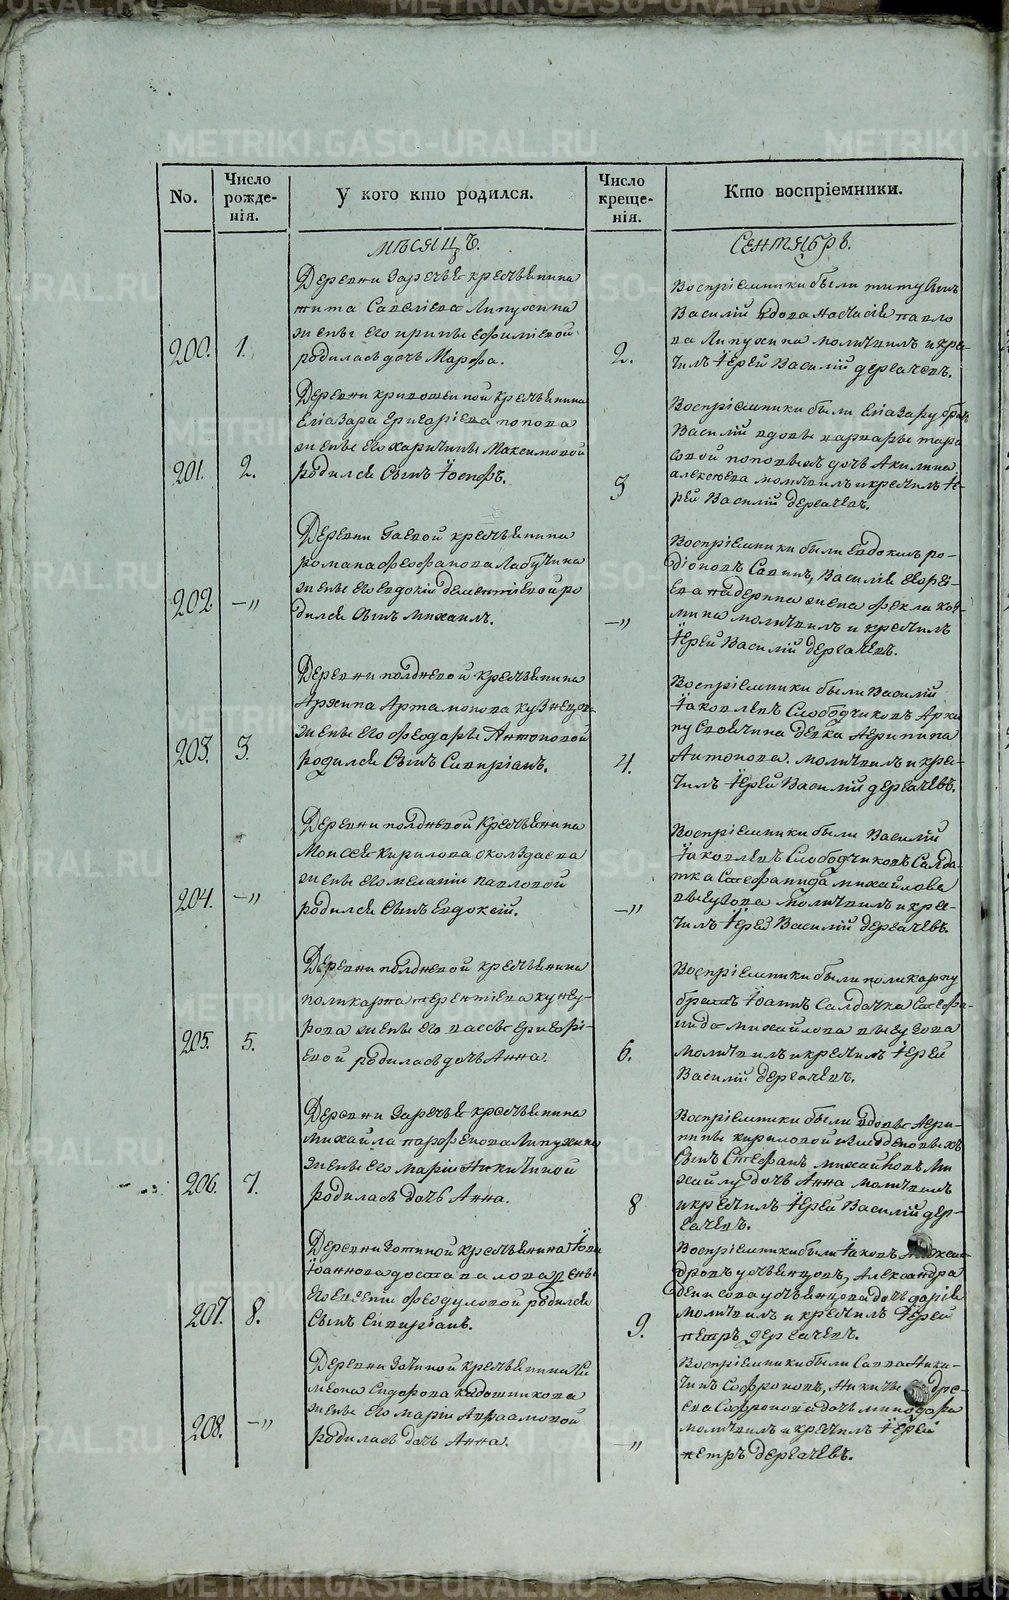 METRIKI.GASO-URAL.RU
No.
Число рожде-
нія.
У кого кто родился.
Число креще-
нія.
Кто воспріемники.
мѣсяцъ.
Сентябрь.
200.
1.
Деревни Заречья крестьянина
тита Савелиева Липухина
жены его ирины ефимиевой
родилась дочь Марфа.
2.
Воспріемники были титу сынъ
Василій вдова настасія павло
ва Липухина молитвилъ и кре-
тилъ Іерей Василій дергачевъ.
201.
2.
Деревни кривошеиной крестьянина
Елиазара григориева попова
жены его харитины Максимовой
родился Сынъ Іосифъ.
3
Воспріемники были Елиазару братъ
Василій вдовы варвары тара
совой поповыхъ дочь Акилина
алексеева молитвилъ и крестилъ Іе-
рей Василій дергачевъ.
202.
—„
Деревни Гаевой крестьянина
романа феофанова Лабутина
жены его евдокіи дементиевой ро
дился Сынъ михаилъ.
—„
Воспріемники были евдокимъ ро-
діоновъ Савинъ, Василія
жена фекла
мина молитвилъ и крестилъ
Іерей Василій дергачевъ.
203.
3.
Деревни полдневой крестьянина
Архипа Артамонова кузнецова
жены его феодоры Антоновой
родился Сынъ Сиприанъ.
4.
Воспріемники были Василій
Іаковлевъ Слободчиковъ Архи
пу Своячина девка Агрипина
Антонова. молитвилъ и кре-
тилъ Іерей Василій дергачевъ.
204.
—„
Деревни полдневой Крестьянина
Моисея Кирилова
жены его меланіи павловой
родился Сынъ Евдоксій.
—„
Воспріемники были Василій
Іаковлевъ Слободчиковъ Салда-
тка Стефанида михайлова
молитвилъ и кре-
тилъ Іерей Василій дергачевъ.
205.
5.
Деревни полдневой крестьянина
поликарпа терентиева кунгу-
рова жены его вассы григорі-
евой родилась дочь Анна.
6.
Воспріемники были поликарпу
братъ Іоаннъ Салдатка Стефа-
нида михайлова
молитвилъ и крестилъ Іерей
Василій дергачевъ.
206.
7.
Деревни Заречья крестьянина
михайла парфенова Липухина
жены его маріи Никитиной
родилась дочь Анна.
8
Воспріемники были вдовы Агри-
пины кириловой
Сынъ Стефанъ Ми
хайлу дочь Анна молитвилъ
и крестилъ Іерей Василій дер-
гачевъ.
207.
8.
Деревни Зотиной крестьянина Іова
Іоаннова доставалова жены
его евгеніи феодуловой родился
Сынъ Сиприанъ.
9.
Воспріемники были Іаковъ Алексан-
дровъ устьянцовъ, Александра
денисова устьянцова дочь дарія
молитвилъ и крестилъ Іерей
петръ дергачевъ.
208.
—„
Деревни Зотиной крестьянина Си
меона Сидорова кадошникова
жены его маріи Авраамовой
родилась дочь Анна.
—„
Воспріемники были Савва Ники-
тинъ Софроновъ, Никиты Андре-
ева Софронова дочь минодора
молитвилъ и крестилъ Іерей
петръ дергачевъ.